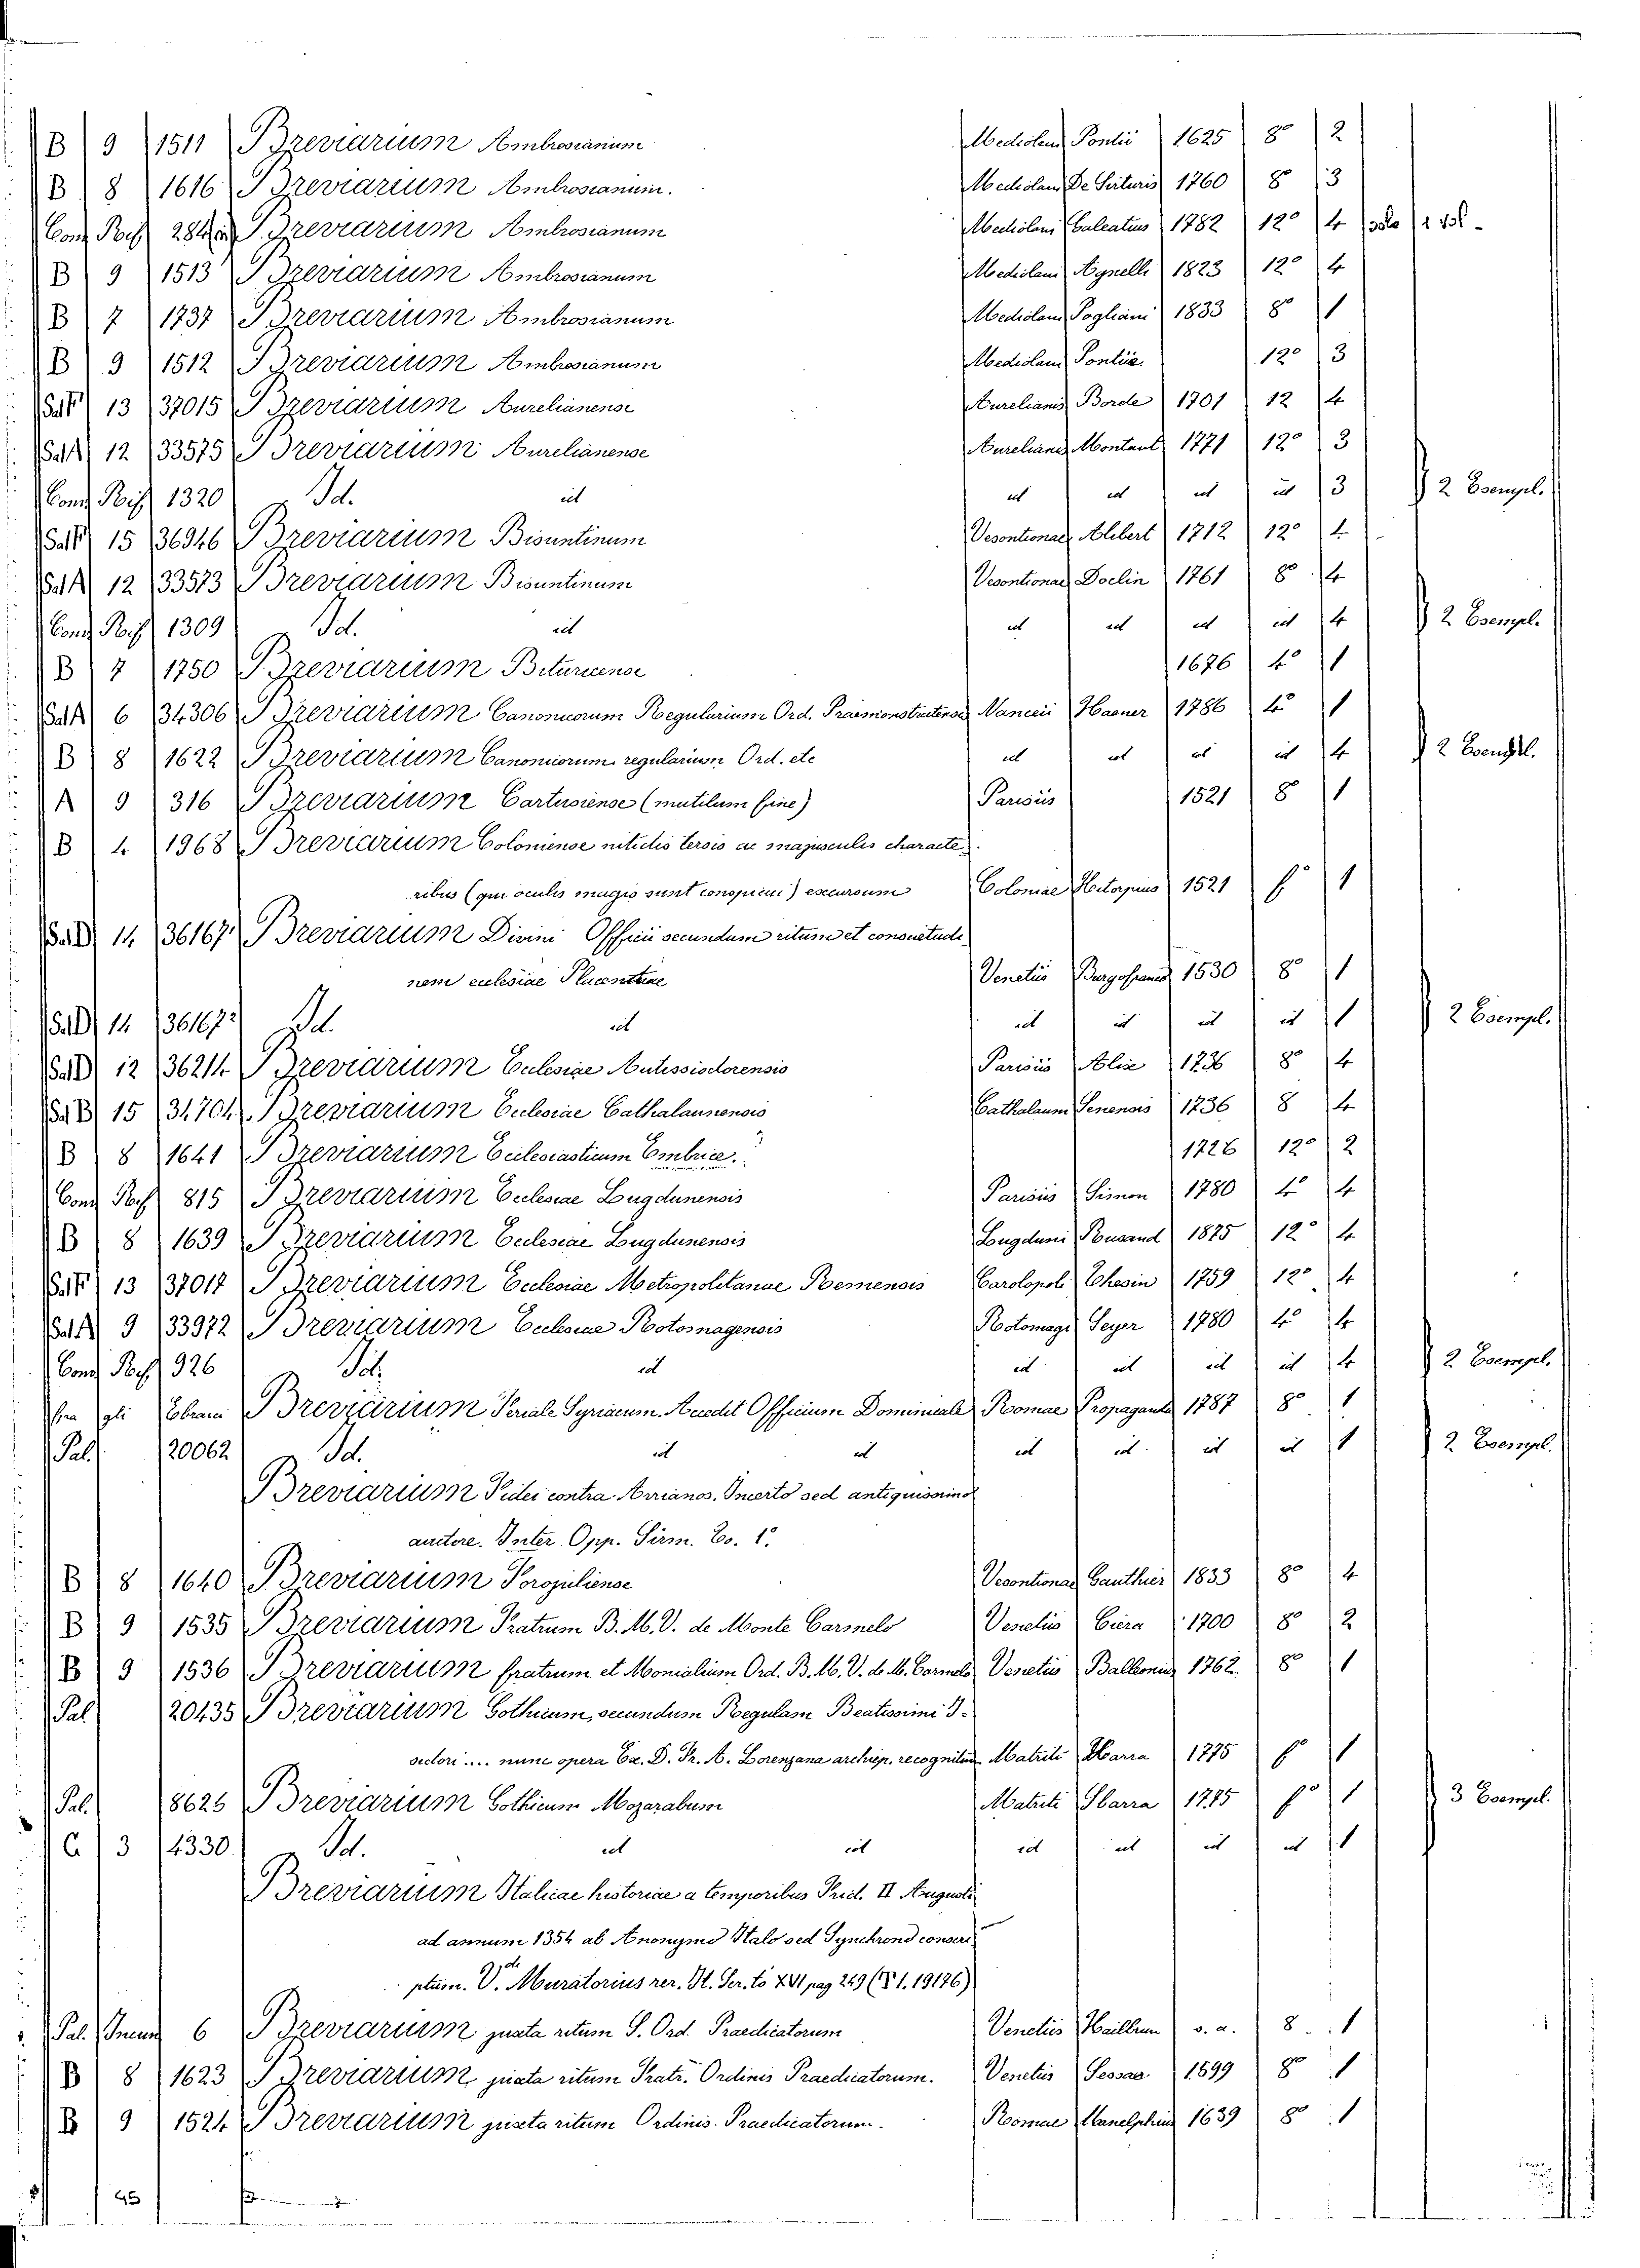 B 9 1511 Breviarium Ambrosianum Mediolan Pontii 1625 8° 2
B 8 1616 Breviarium Ambrosianum. Mediolan De Sirturis 1760 8° 3
Con. Ris. Breviarium Ambrosianum Mediolani Galeatius 1782 12° 4
B 9 1513 Breviarium Ambrosianum Mediolani Agnelli 1823 12° 4
B 7 1737 Breviarium Ambrosianum Mediolani Pogliani 1833 8° 1
B 9 1512 Breviarium Ambrosianum Mediolani Pontiie. 12° 3
Sal F 13 37015 Breviarium Aurelianense Aurelianis Borde 1701 12 4
Sal A 12 33575 Breviarium Aurelianense Aurelianis Montaut 1771 12° 3
Con. Ris. 1320 Id. id id id id id 3 2 Esempl.
Sal F 15 36946 Breviarium Bisuntinum Vesontionae Alibert 1712 12° 4
Sal A 12 33573 Breviarium Bisuntinum Vesontionae Doclin 1761 8° 4
Con. Ris. 1309 Id. id id id id id 4 2 Esempl.
B 7 1750 Breviarium Bituricense 1676 4° 1
Sal A 6 34306 Breviarium Canonicorum Regularium Ord. Praemonstratensis Nanceii Haener 1786 4° 1
B 8 1622 Breviarium Canonicorum regularium Ord. etc id id id id 4 2 Esempl.
A 9 316 Breviarium Cartusiense (mutilum fine) Parisiis 1521 8 1
B 4 1968 Breviarium Coloniense nitidis tersis ac majusculis characte
ribus (qui oculis magis sunt conspicui) excursum Coloniae Hetorpius 1521 f° 1
Sal D 14 36167 Breviarium Divini Officii secundum ritum et consuetudi
nem ecclesiae Placentinae Venetiis Burgofranco 1530 8° 1
Sal D 14 36167² Id. id id id id id 1 2 Esempl.
Sal D 12 36214 Breviarium Ecclesiae Autissiodorensis Parisiis Alix 1736 8° 4
Sal B 15 31704 Breviarium Ecclesiae Cathalaunensis Cathalaum Senensis 1736 8 4
B 8 1641 Breviarium Ecclesiasticum Embrice. 1726 12° 2
Con. Ris. 815 Breviarium Ecclesiae Lugdunensis Parisiis Simon 1780 4° 4
B 8 1639 Breviarium Ecclesiae Lugdunensis Lugduni Rusand 1875 12° 4
Sal F 13 37017 Breviarium Ecclesiae Metropolitanae Remensis Carolopoli Thesin 1759 12° 4
Sal A 9 33972 Breviarium Ecclesiae Rotomagensis Rotomagi Seyer 1780 4° 4
Con. Ris. 926 Id. id id id id id 4 2 Esempl.
fra gli Ebraici Breviarium Feriale Syriacum. Accedit Officium Dominicale Romae Propaganda 1787 8° 1
Pal. 20062 Id. id id id id id id 1 2 Esempl.
Breviarium Fidei contra Arrianos. Incerto sed antiquissimo
auctore. Inter Opp. Sirm. to. 1°
B 8 1640 Breviarium Forojuliense Vesontionae Gauthier 1833 8° 4
B 9 1535 Breviarium Fratrum B. M. V. de Monte Carmelo Venetiis Ciera 1700 8° 2
B 9 1536 Breviarium fratrum et Monialium Ord. B. M. V. de M. Carmelo Venetiis Balleonius 1762 8° 1
Pal 20435 Breviarium Gothicum, secundum Regulam Beatissimi I-
sidori .... nunc opera Ex. D. Fr. A. Lorenzana archiep. recognitum Matriti Ibarra 1775 f° 1
Pal. 8626 Breviarium Gothicum Mozarabum Matriti Ibarra 1775 f° 1 3 Esempl.
C 3 4330 Id. id id id id id id 1
Breviarium Italicae historiae a temporibus Frid. II Augusti
ad annum 1354 ab Anonymo Italo sed Synchrono conscri
ptum. Vde. Muratorius rer. It. Scr. to XVI pag 249
Pal. Incun 6 Breviarium juxta ritum S. Ord. Praedicatorum Venetiis Hailbrun s. a. 8 1
B 8 1623 Breviarium juxta ritum Fratr. Ordinis Praedicatorum. Venetiis Sessae 1599 8° 1
B 9 1524 Breviarium juxta ritum Ordinis Praedicatorum. Romae Manelphius 1639 8° 1
45